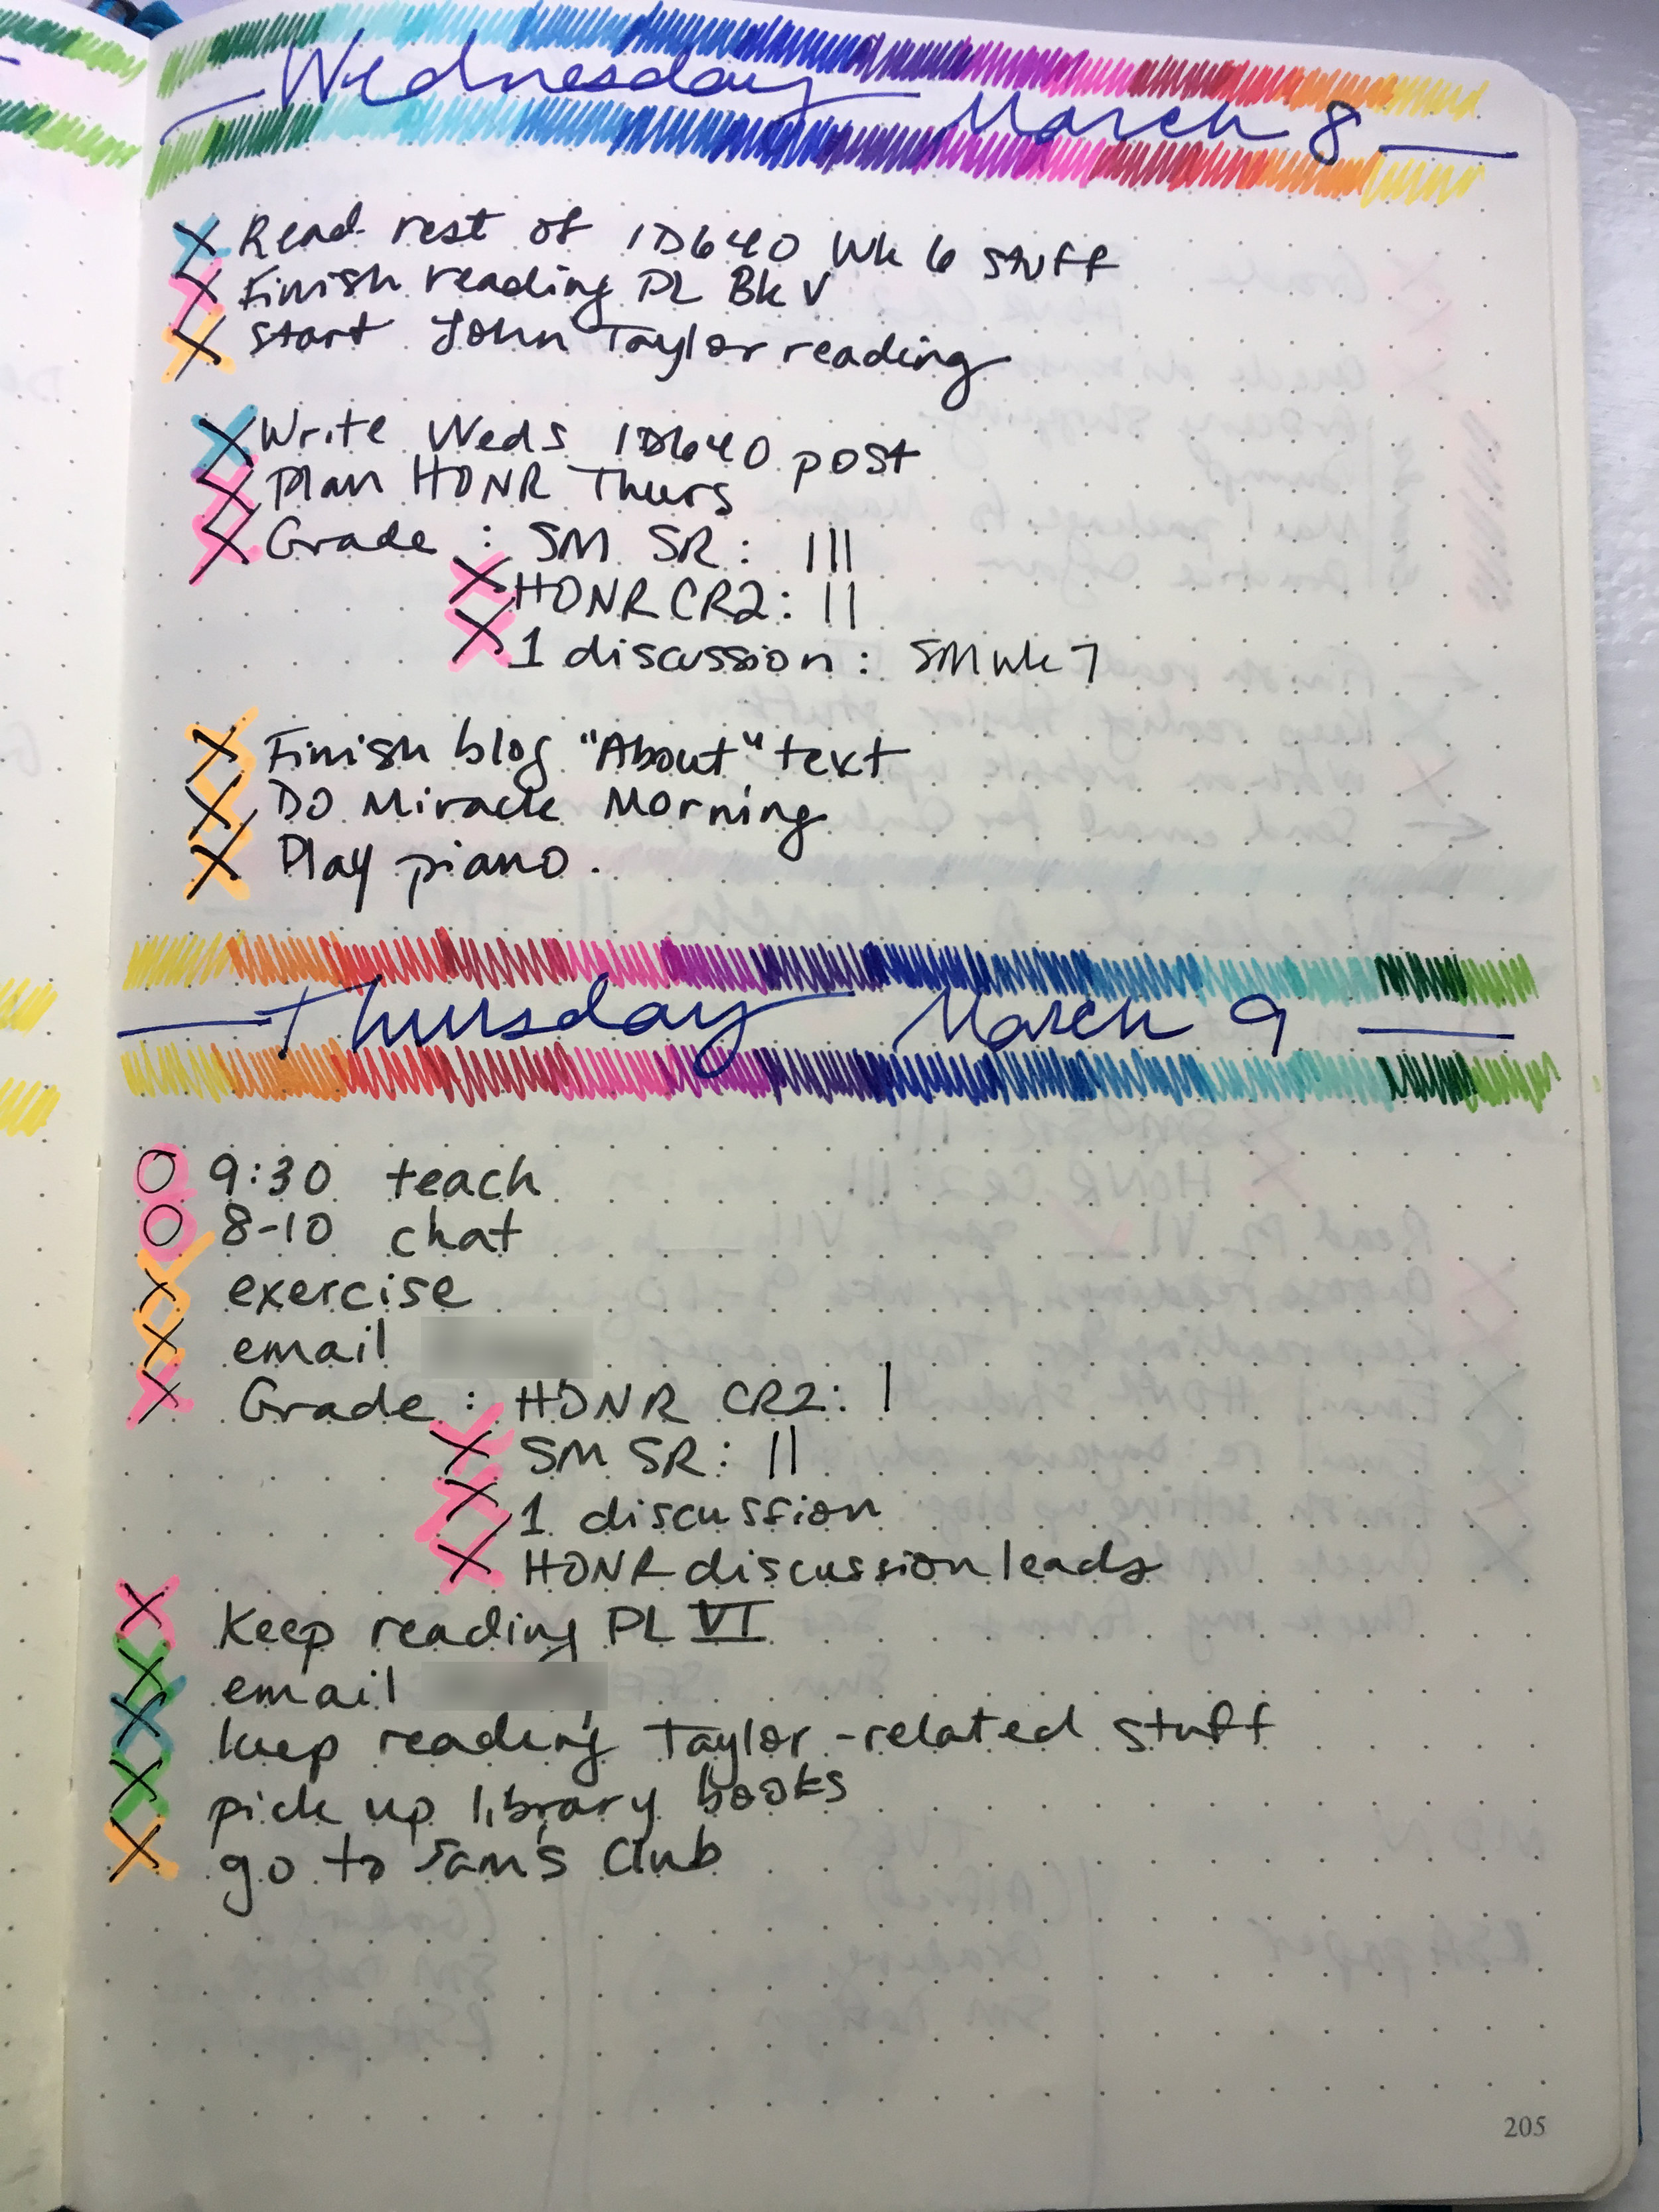 Wednesday March 8
X Read rest of ID640 Wk 6 stuff
X Finish reading PL Bk V
X Start John Taylor reading
X Write Weds ID640 post
X Plan HONR Thurs
X Grade : SM SR: |||
X HONR CR2: ||
X 1 discussion: SM wk 7
X Finish blog "About" text
X Do Miracle Morning
X Play piano.
Thursday March 9
O 9:30 teach
O 8-10 chat
X exercise
X email
X Grade : HONR CR2: |
X SM SR: ||
X 1 discussion
X HONR discussion leads
X Keep reading PL VI
X email
X keep reading Taylor-related stuff
X pick up library books
X go to Sam's Club
205